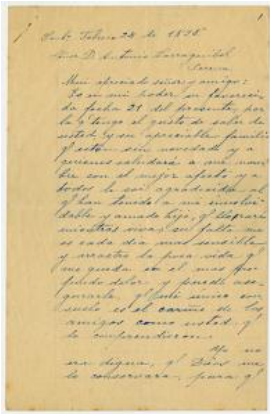 Febrero 28 de 1898
Señor D. Antonio
Muy apreciado señor y amigo:
Es en mi poder su favorecida
fecha 21 del presente, por
la q tengo el gusto de saber de
usted y su apreciable familia
q estén sin novedad y a
quienes saludará a mi nom
bre con el mejor afecto y a
todos le soi agradecida al
q han tenido a mi inolvi
dable y amado hijo, q lloraré
mientras viva; su falta me
es cada dia mas sensible
y arrastro la poca vida q
me queda en el mas pro
fundo dolor y puedo ase
gurarle, q mi unico con
suelo es el cariño de los
amigos como usted q
lo comprendieron.
Yo no
era digna, q Dios me
lo conservara, para q